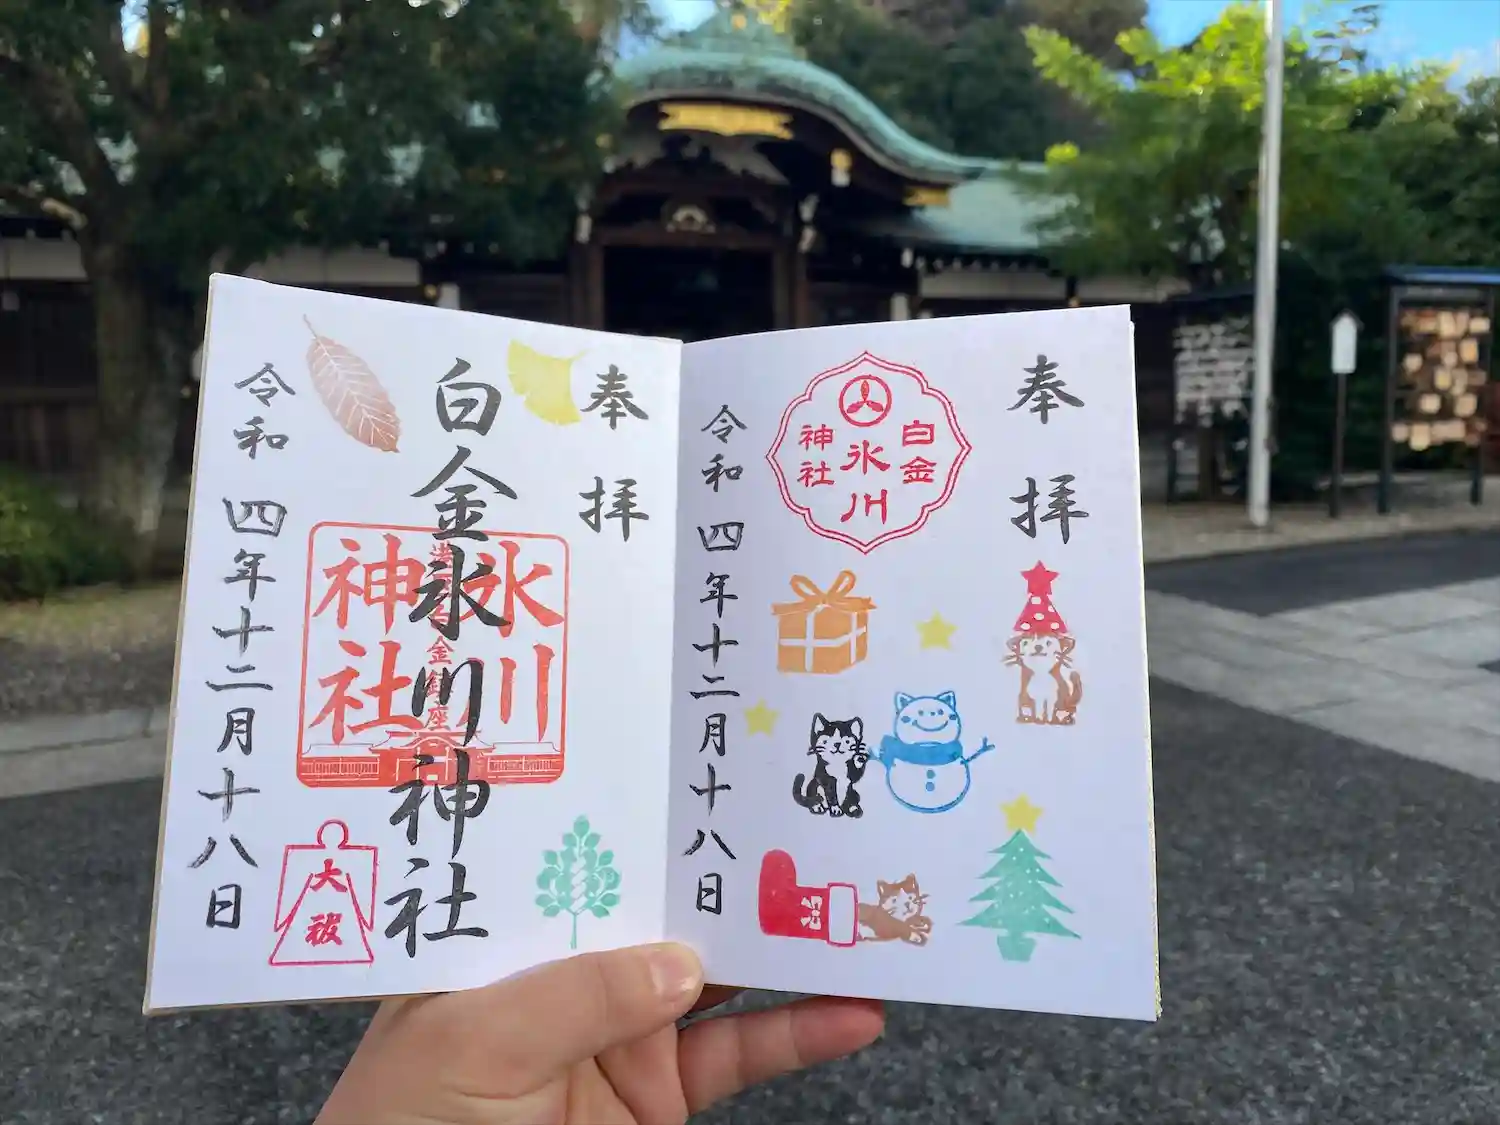 奉拝
白金氷川神社
氷川
神社
令和四年十二月十八日
大祓
奉拝
白金
氷川
神社
令和四年十二月十八日